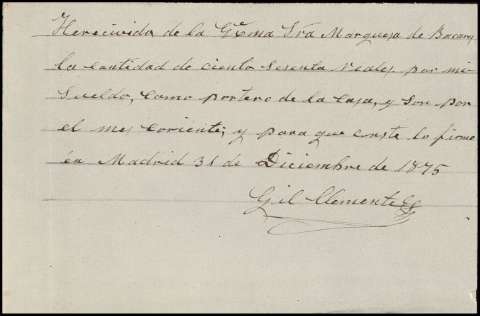 He recivido de la Ecma Sra Marquesa de Bacares
la cantidad de ciento sesenta reales por mi
sueldo, como portero de la casa, y son por
el mes corriente; y para que conste lo firmo
en Madrid 31 de Diciembre de 1875
Gil Clemente